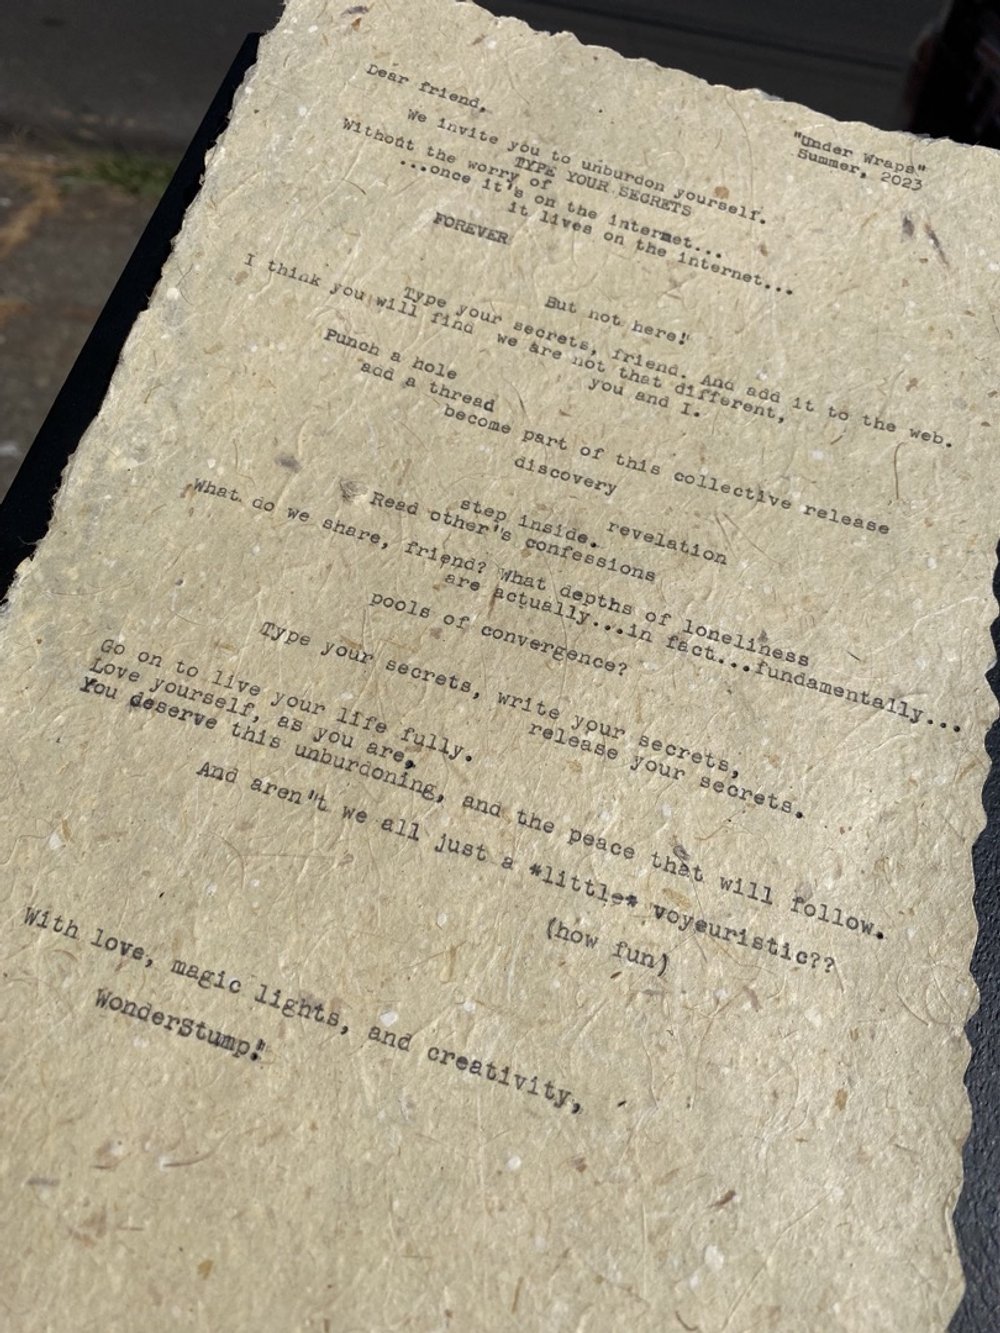 "Under Wraps"
Summer, 2023
Dear friend,
We invite you to unburdon yourself.
TYPE YOUR SECRETS
Without the worry of
...once it's on the internet...
it lives on the internet...
FOREVER
But not here!
Type your secrets, friend. And add it to the web.
I think you will find we are not that different,
you and I.
Punch a hole
add a thread
become part of this collective release
discovery
revelation
step inside.
Read other's confessions
What do we share, friend? What depths of loneliness
are actually...in fact...fundamentally...
pools of convergence?
Type your secrets, write your secrets,
release your secrets.
Go on to live your life fully.
Love yourself, as you are.
You deserve this unburdoning, and the peace that will follow.
And aren't we all just a *little* voyeuristic??
(how fun)
With love, magic lights, and creativity,
WonderStump!